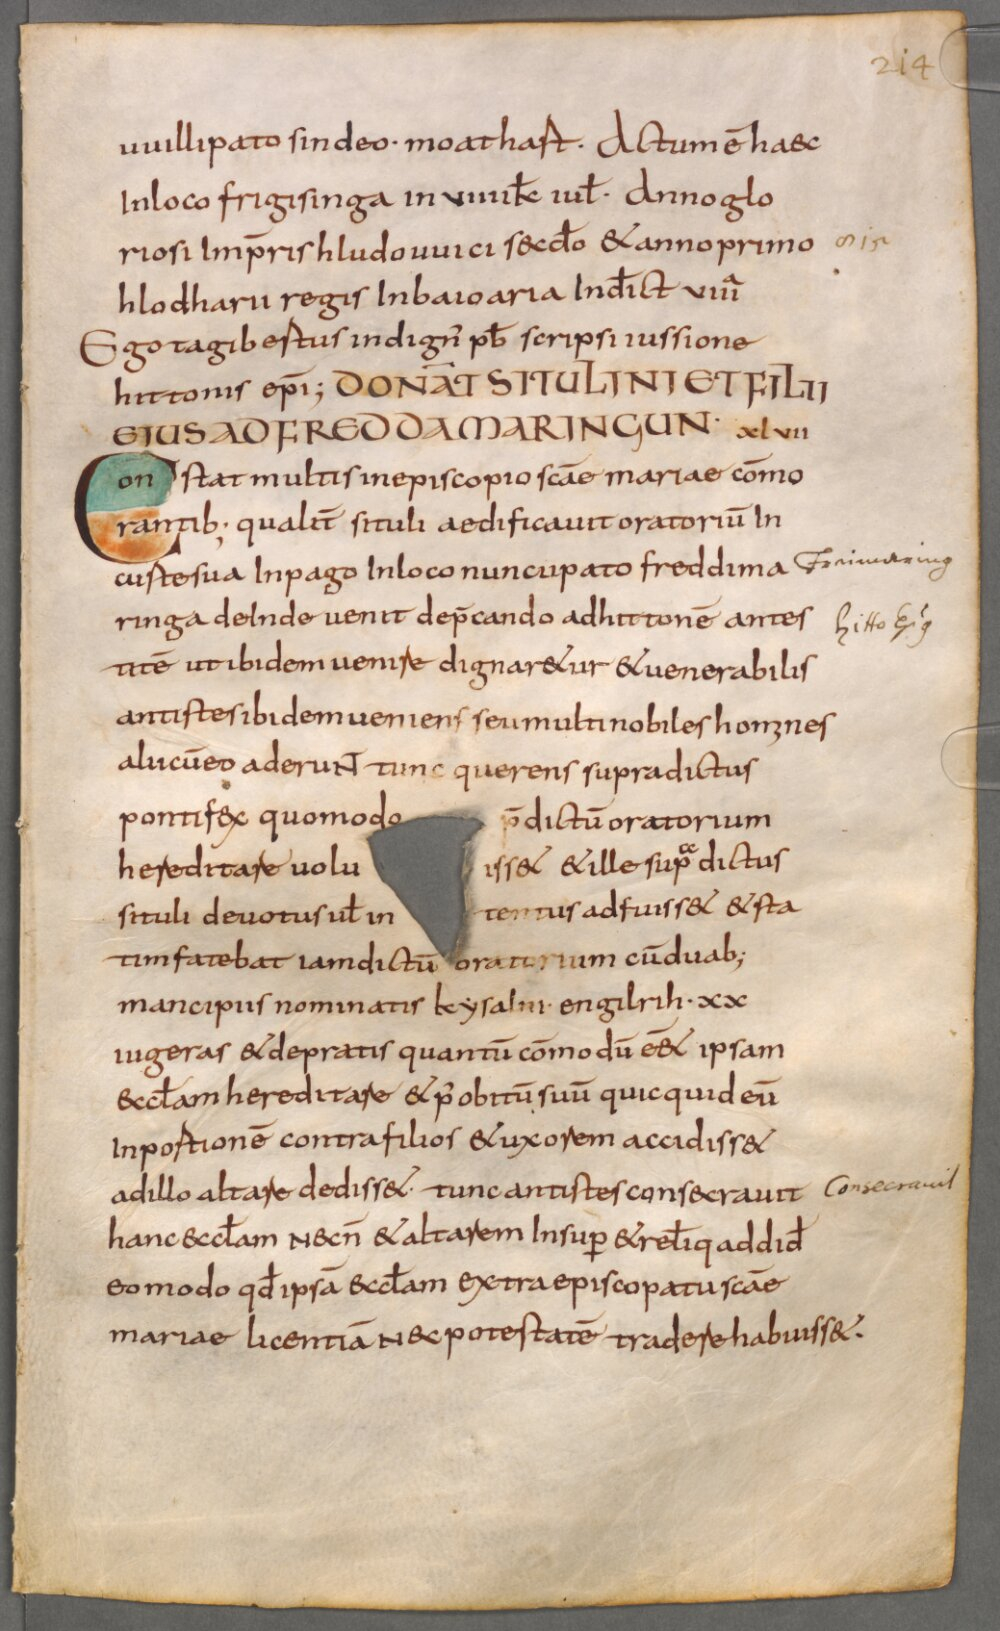 214
uuillipato sindeo· moathast· Actum ē haec
In loco frigisinga in viiii kł iuł· Anno glo
riosi Imp̄ris hludouuici secđo & anno primo 815
hlodharii regis In baioaria Inđict viiiᵃ
Ego tagibestus indign̄ pb̄ scripsi iussione
hittonis ep̄i; DONAT̄ SITULI NI ET FILII
EIUS AD FREDDAMARINGUN· xlvii
Constat multis in episcopio scāe mariae cōmo
rantib; qualit̄ situli aedificauit oratoriū In
custe sua In pago In loco nuncupato freddima Frimaring
ringa deInde uenit dep̄cando ad hittonē antes hitto Ep̄s
titē ut ibidem uenire dignar&ur & uenerabilis
antistes ibidem ueniens seu multi nobiles homines
alii cū eo aderuNT̄ tunc querens supradictus
pontifex quomodo p̄dictū oratorium
hereditare uolu iss& & ille sup̄ dictus
situli deuotus uł in tentus adfuiss& & sta
tim fatebat iamdictū oratorium cū duab;
mancipiis nominatis keysalni· engilrih· xx
iugeras & de pratis quantū cōmodū eē& ipsam
&cctam hereditare & p̄ obitū suū quicquid eū
In portionē contra filios & uxorem accidiss&
ad illo altare dediss&· tunc antistes consecrauit Consecrauit
hanc &cctam Necn̄ & altarem Insup̄ & reliq addiđ
eo modo qđ ipsā &cctam extra episcopatu scāe
mariae licentiā Nec potestatē tradere habuiss&·